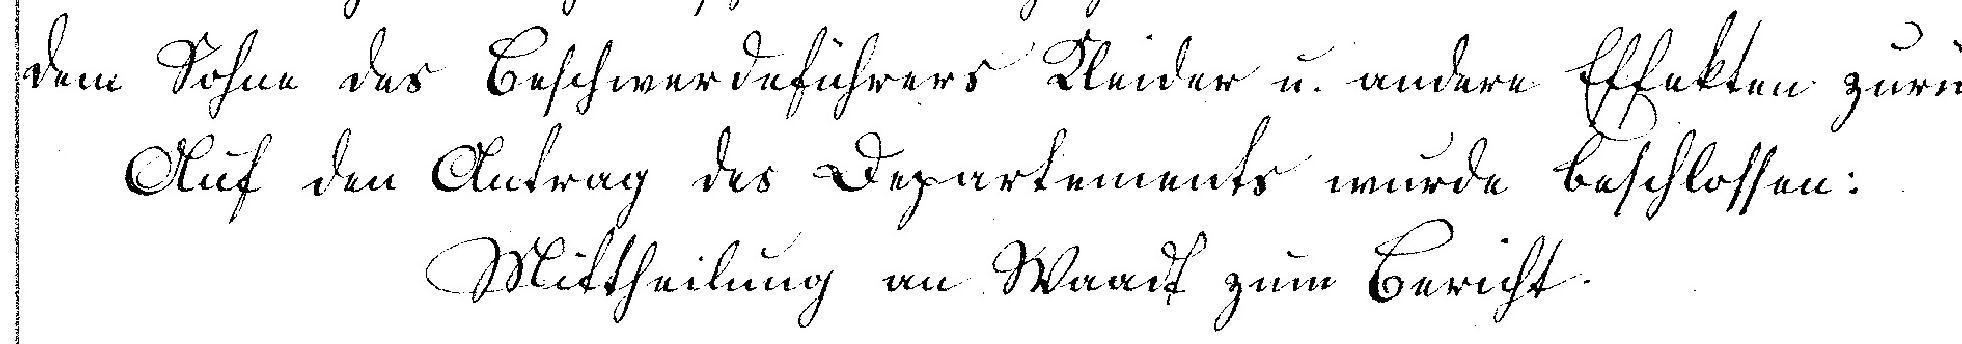 dem Sohne des Beschwerdeführers Kleider u. andere Effekten zurü
Auf den Antrag des Departements wurde beschlossen:
Mittheilung an Waadt zum Bericht.